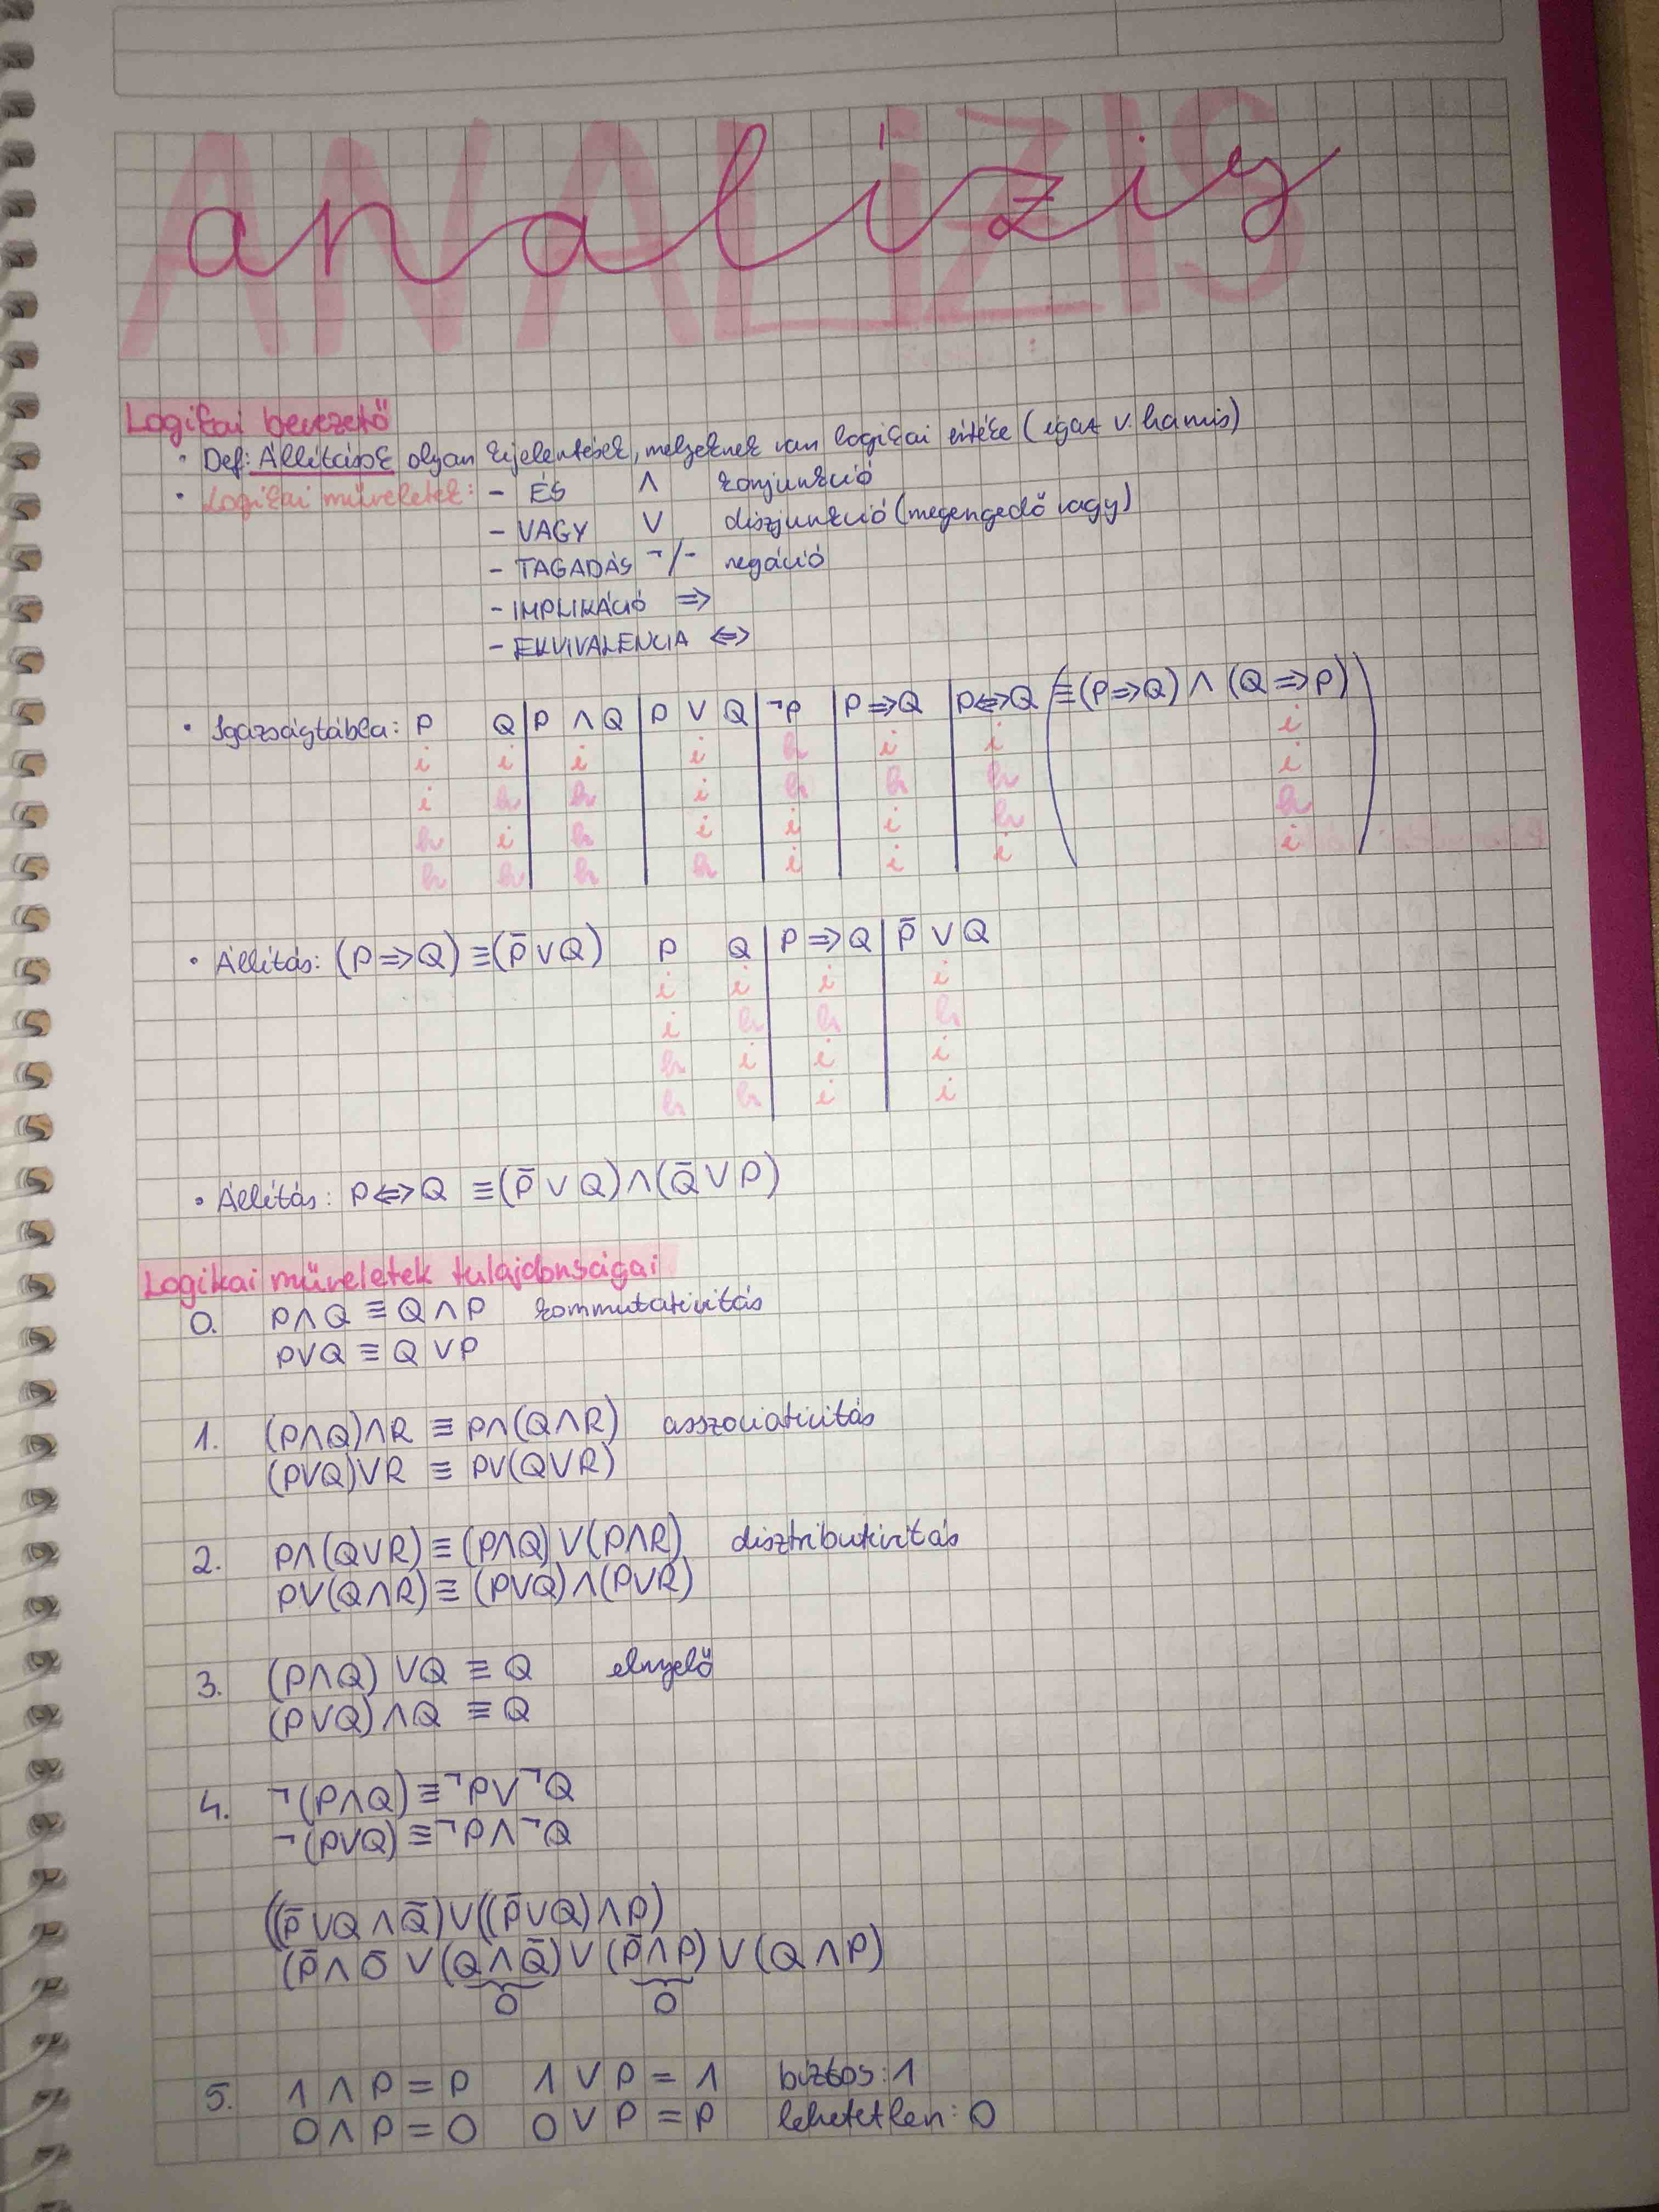 ANALÍZIS
analízis
Logikai bevezető
• Def: Állítások olyan kijelentések, melyeknek van logikai értéke (igaz v. hamis)
• Logikai műveletek: - ÉS ∧ konjunkció
- VAGY ∨ diszjunkció (megengedő vagy)
- TAGADÁS ¬/- negáció
- IMPLIKÁCIÓ =>
- EKVIVALENCIA <=>
• Igazságtábla: P Q | P ∧ Q | P ∨ Q | ¬P | P => Q | P <=> Q (≡ (P => Q) ∧ (Q => P))
i i i i h i i i
i h h i h h h i
h i h i i i h h
h h h h i i i i
• Állítás: (P => Q) ≡ (P̄ ∨ Q) P Q | P => Q | P̄ ∨ Q
i i i i
i h h h
h i i i
h h i i
• Állítás: P <=> Q ≡ (P̄ ∨ Q) ∧ (Q̄ ∨ P)
Logikai műveletek tulajdonságai
0. P ∧ Q ≡ Q ∧ P kommutativitás
P ∨ Q ≡ Q ∨ P
1. (P∧Q)∧R ≡ P∧(Q∧R) asszociativitás
(P∨Q)∨R ≡ P∨(Q∨R)
2. P∧(Q∨R) ≡ (P∧Q)∨(P∧R) disztributivitás
P∨(Q∧R) ≡ (P∨Q)∧(P∨R)
3. (P∧Q) ∨Q ≡ Q elnyelő
(P∨Q)∧Q ≡ Q
4. ¬(P∧Q) ≡ ¬P∨¬Q
¬(P∨Q) ≡ ¬P∧¬Q
((P̄ ∨Q ∧Q̄)∨((P̄∨Q)∧P)
(P̄∧Ō ∨(Q∧Q̄)∨(P̄∧P)∨(Q∧P)
0 0
5. 1 ∧ P = P 1 ∨ P = 1 biztos: 1
0 ∧ P = 0 0 ∨ P = P lehetetlen: 0